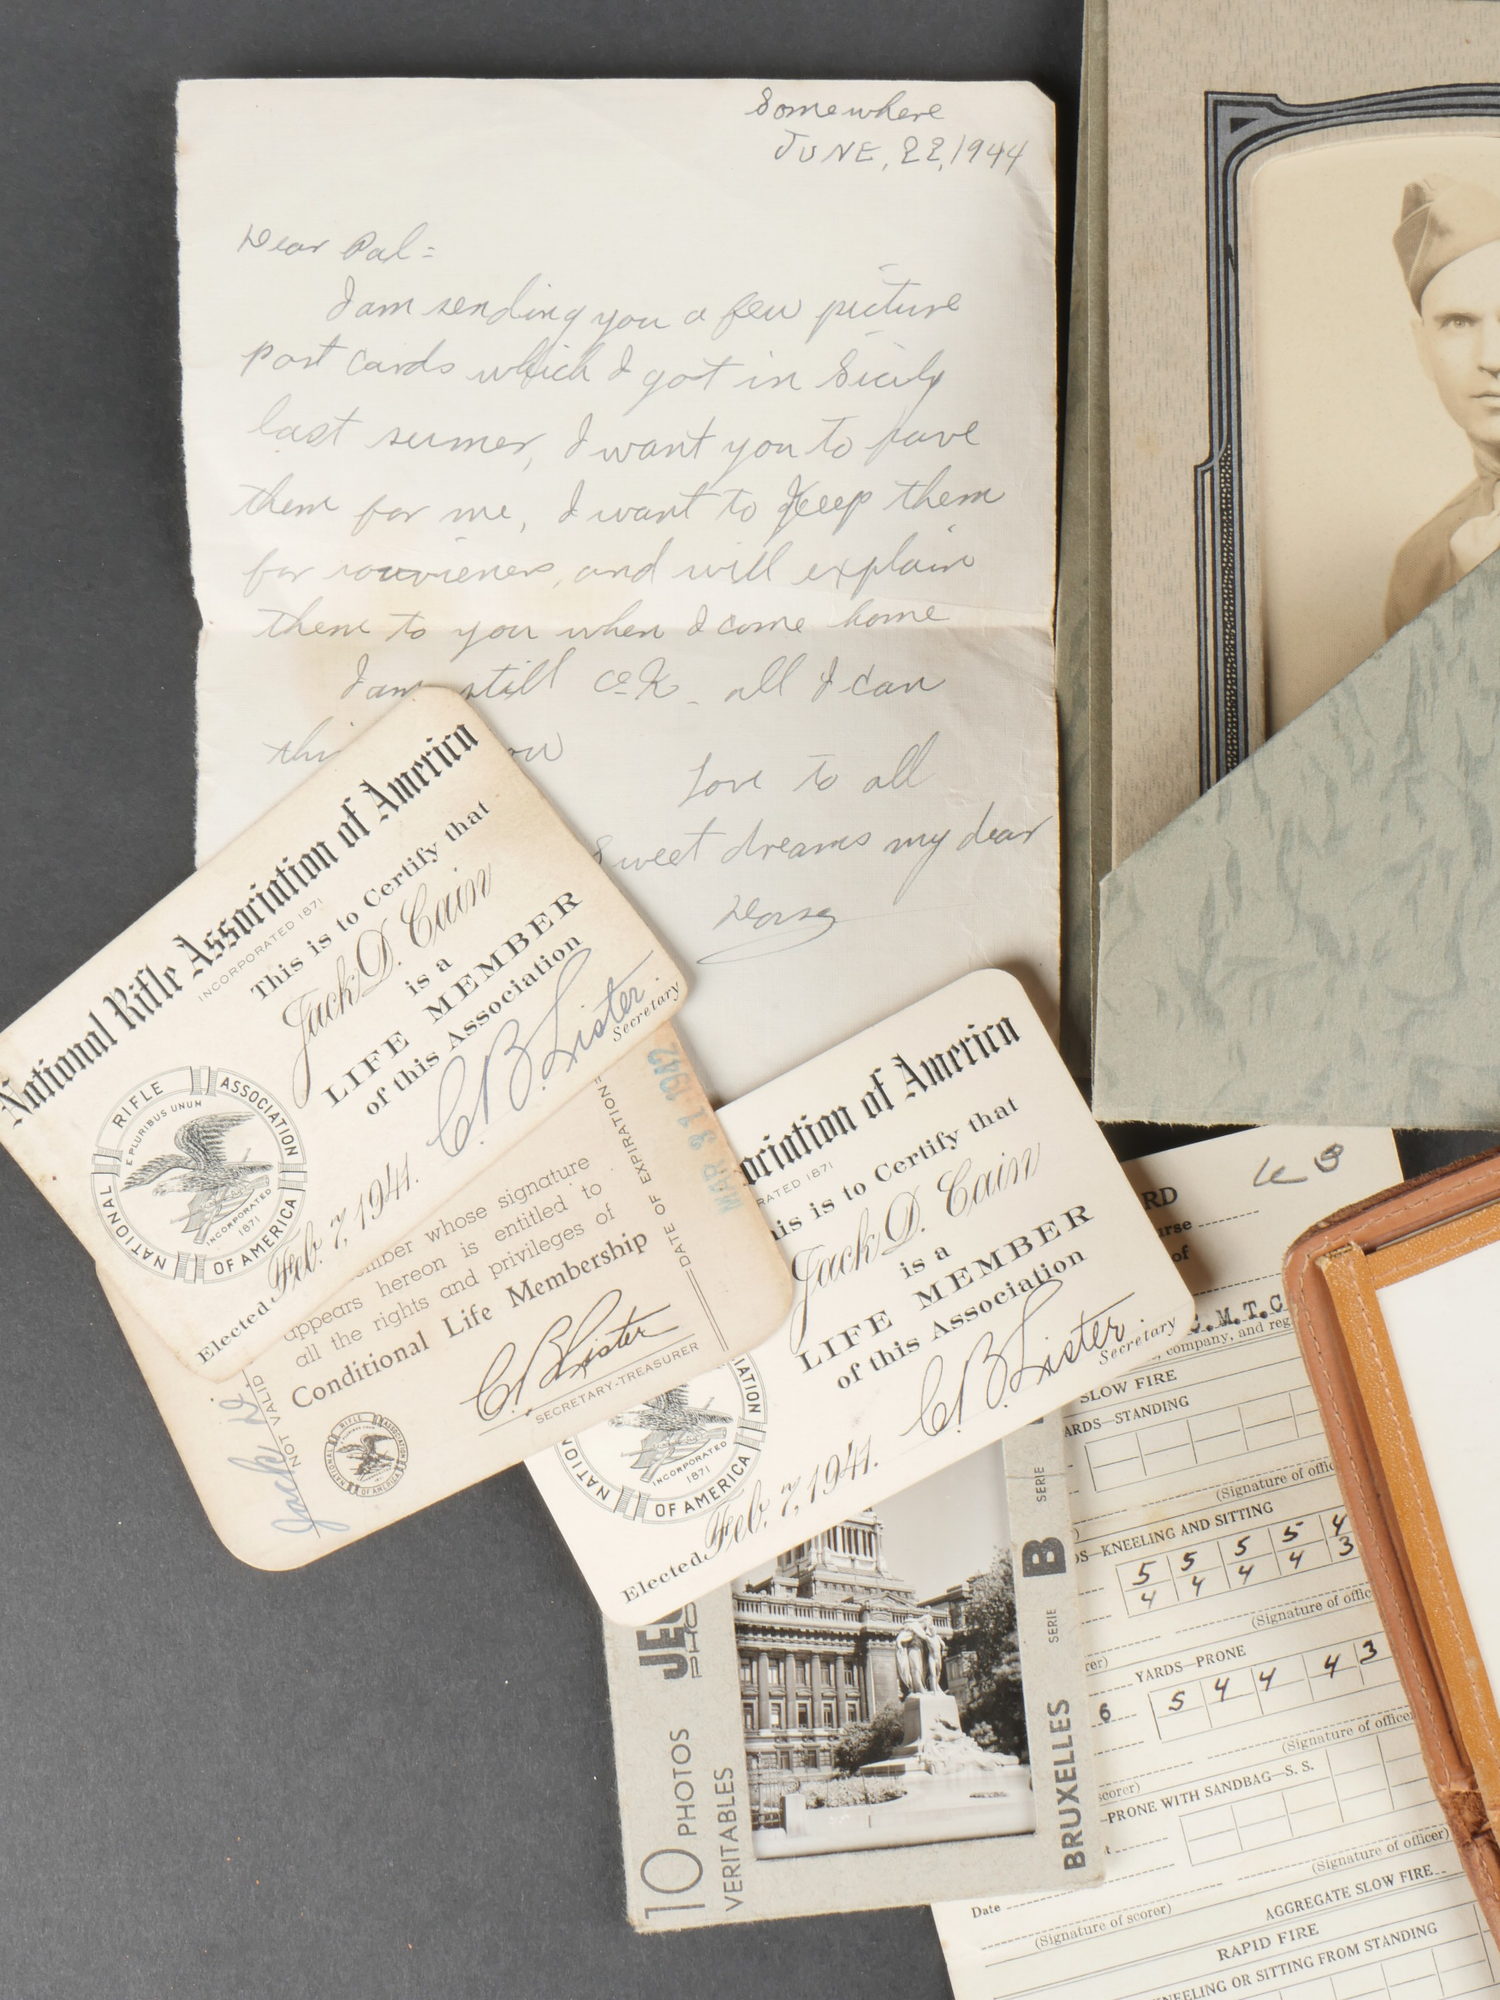 Somewhere
JUNE, 22, 1944
Dear Pal=
I am sending you a few picture
post cards which I got in Sicily
last sumer, I want you to save
them for me, I want to keep them
for souvieners, and will explain
them to you when I come home
I am still O.K. all I can
Love to all
Sweet dreams my dear
National Rifle Association of America
INCORPORATED 1871
This is to Certify that
Jack D. Cain
is a
LIFE MEMBER
of this Association
C. B. Lister.
Secretary
NATIONAL RIFLE ASSOCIATION OF AMERICA
E PLURIBUS UNUM
INCORPORATED
1871
Elected Feb. 7, 1941.
MAR 31 1942
DATE OF EXPIRATION
whose signature
appears hereon is entitled to
all the rights and privileges of
Conditional Life Membership
C. B. Lister
SECRETARY-TREASURER
NOT VALID
Jack
of America
1871
is to Certify that
Jack D. Cain
is a
LIFE MEMBER
of this Association
C. B. Lister.
Secretary
INCORPORATED
1871
OF AMERICA
Elected Feb. 7, 1941.
SERIE B SERIE
BRUXELLES
10 PHOTOS
VERITABLES
of
C.M.T.C.
company, and
SLOW FIRE
STANDING
(Signature of
KNEELING AND SITTING
5 5 5 5 4
4 4 4 4 3
(Signature of
YARDS—PRONE
6 5 4 4 4 3
(Signature of
PRONE WITH SANDBAG—S. S.
(Signature of officer)
Date
(Signature of scorer)
AGGREGATE SLOW FIRE
RAPID FIRE
KNEELING OR SITTING FROM STANDING